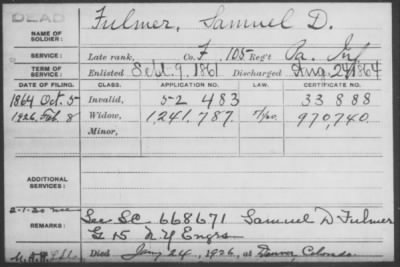 DEAD
NAME OF SOLDIER: Fulmer, Samuel D.
SERVICE: Late rank, Co. F, 105 Reg't Pa. Inf
TERM OF SERVICE: Enlisted Sept. 9, 1861 Discharged Aug. 29, 1864
DATE OF FILING. CLASS. APPLICATION NO. LAW. CERTIFICATE NO.
1864 Oct. 5 Invalid, 52 483 33 888
1926. Feb. 8 Widow, 1,241,787. 970,740.
Minor,
ADDITIONAL SERVICES:
2-1-30
REMARKS: See SC 668671 Samuel D Fulmer
G 15 N.Y Engrs
Died Jany 24, 1926, at Denver, Colorado.